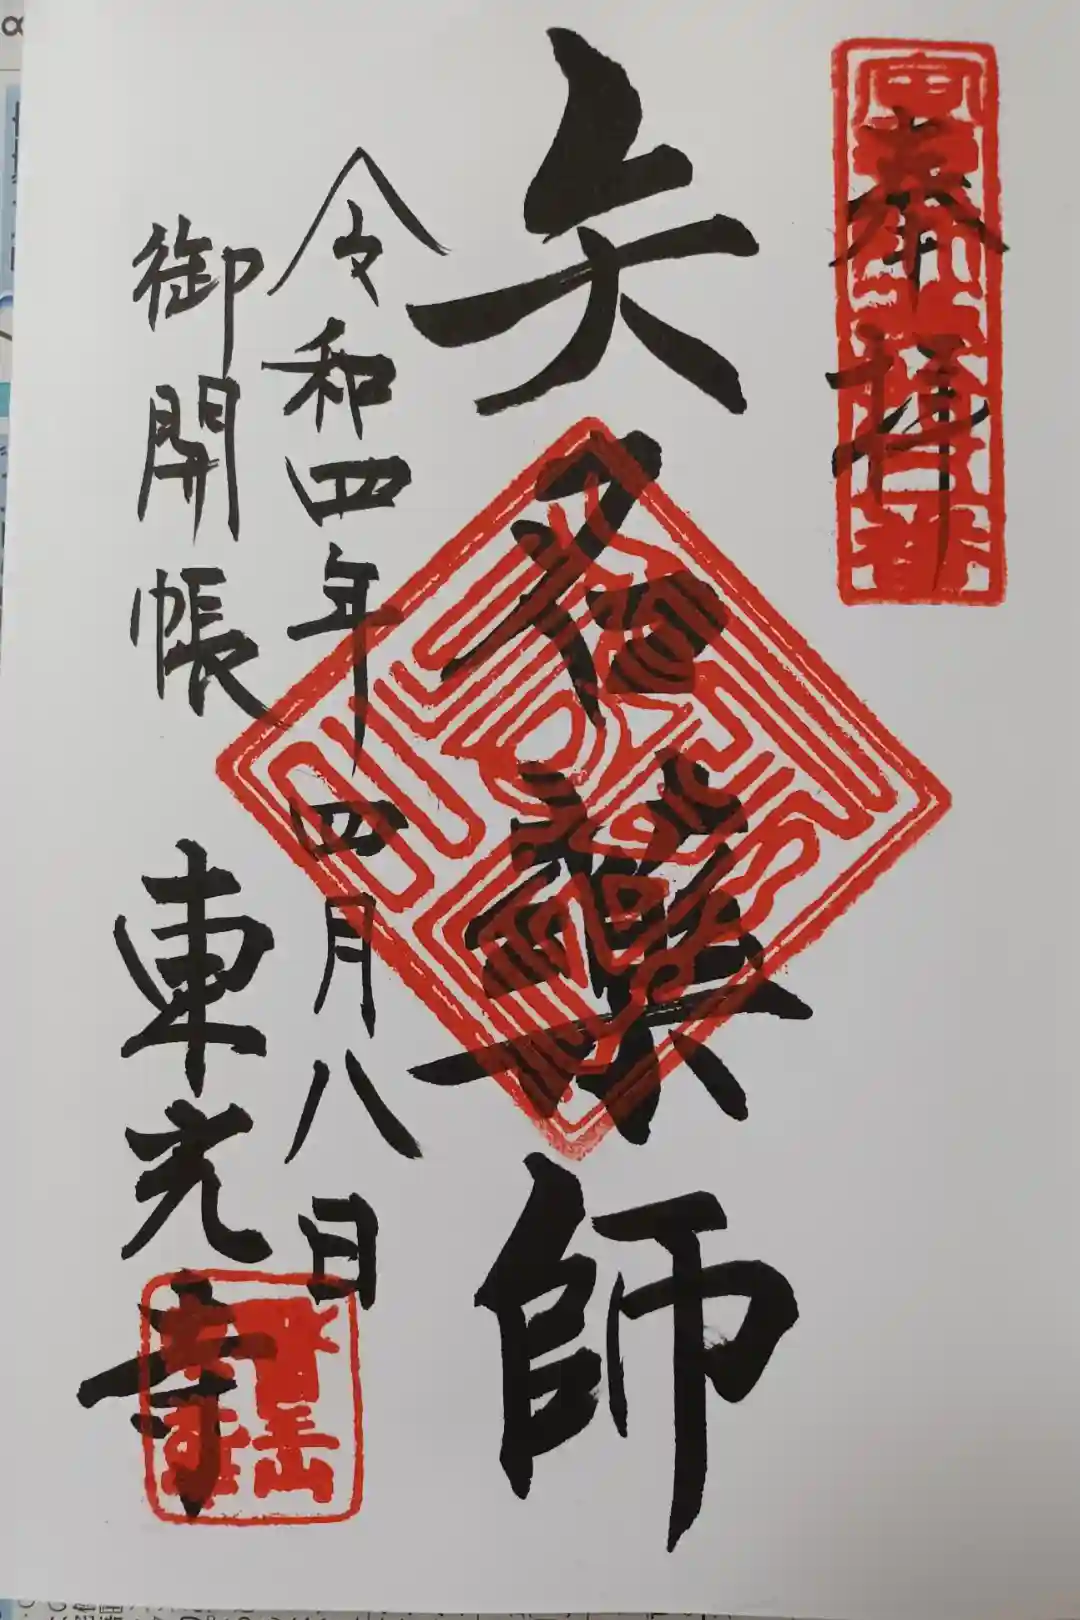 奉拝
矢名藥師
令和四年四月八日
御開帳 東光寺